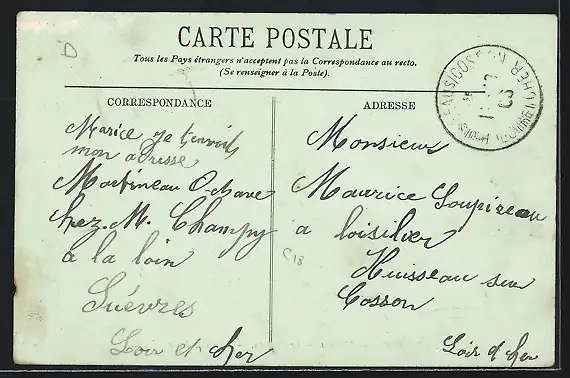 D
CARTE POSTALE
Tous les Pays étrangers n'acceptent pas la Correspondance au recto.
(Se renseigner à la Poste).
CORRESPONDANCE
Marice je t'envoie
mon adresse
Martineau
chez M. Champy
a la loin
Suèvres
Loir et cher
ADRESSE
Monsieur
Maurice Soupireau
a loisilier
Huisseau sur
Cosson
Loir et cher
C18